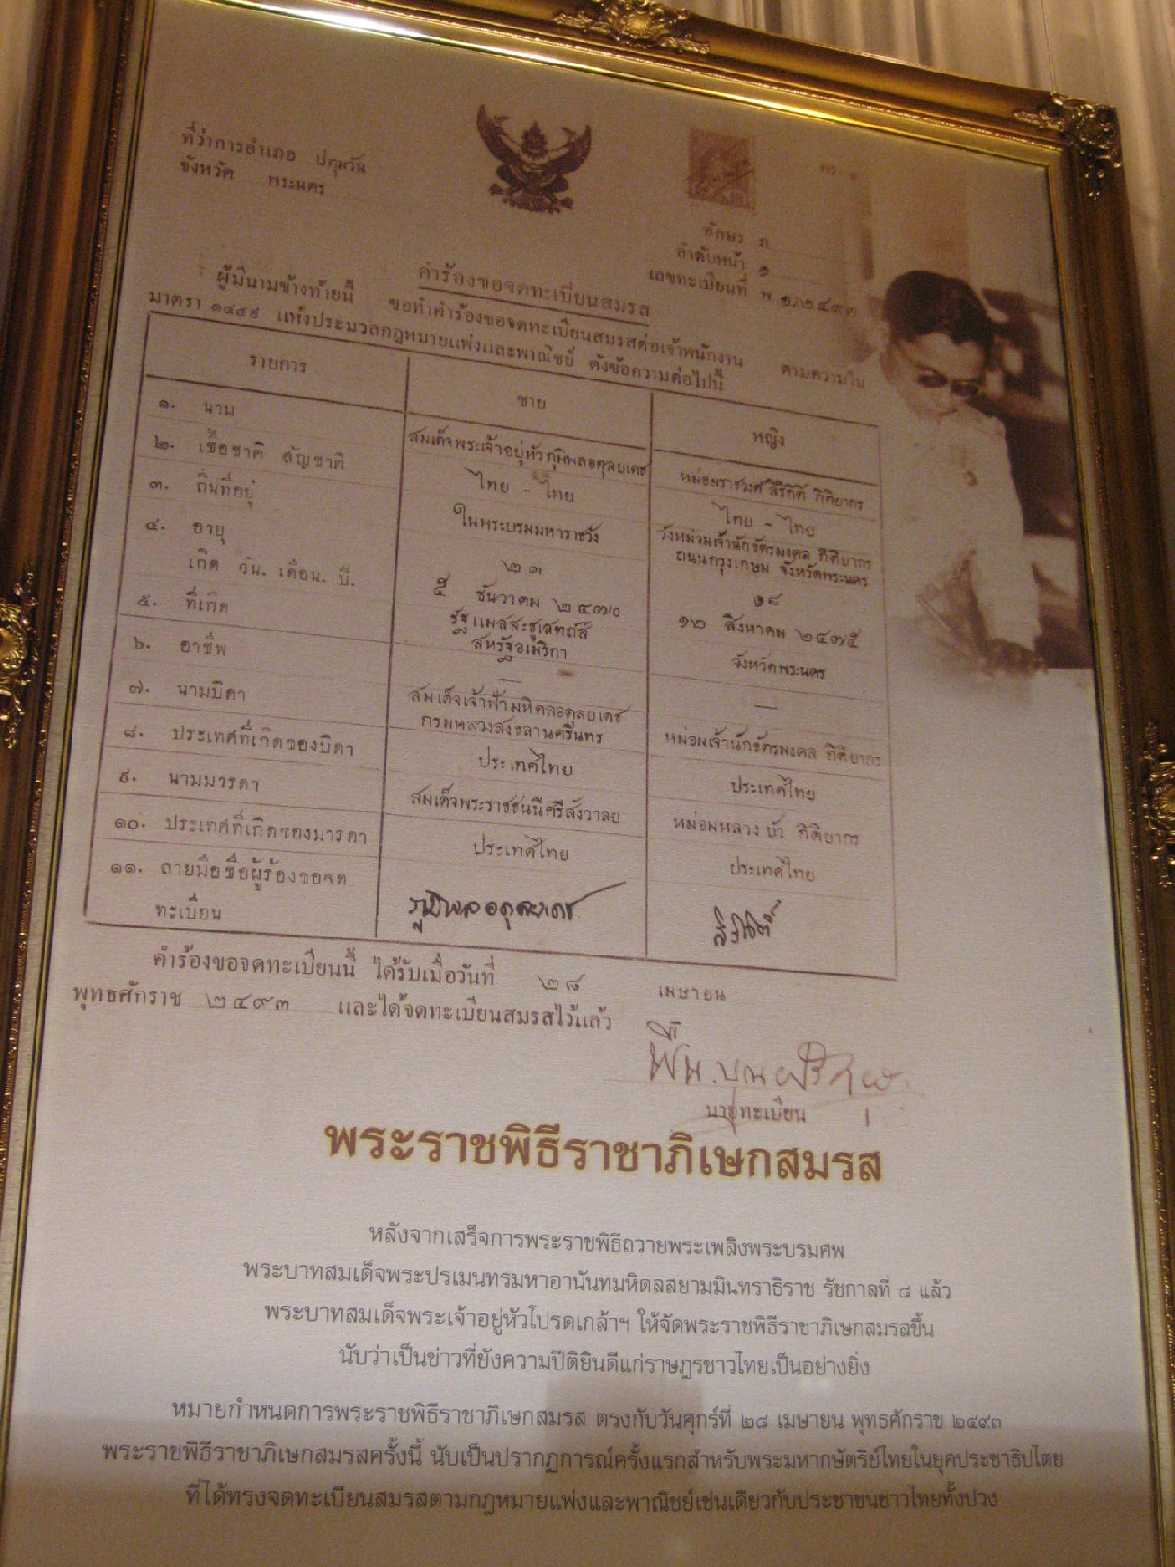 ที่ว่าการอำเภอ ปทุมวัน
จังหวัด พระนคร
อักษร ภ
ลำดับหน้า ๑
เลขทะเบียนที่ พ.๑/๒๔๙๓
คำร้องขอจดทะเบียนสมรส
ผู้มีนามข้างท้ายนี้ ขอทำคำร้องขอจดทะเบียนสมรสต่อเจ้าพนักงาน ตามความใน
มาตรา ๑๔๔๙ แห่งประมวลกฎหมายแพ่งและพาณิชย์ ดังข้อความต่อไปนี้
รายการ ชาย หญิง
๑. นาม สมเด็จพระเจ้าอยู่หัวภูมิพลอดุลยเดช หม่อมราชวงศ์ สิริกิติ์ กิติยากร
๒. เชื้อชาติ สัญชาติ ไทย - ไทย ไทย - ไทย
๓. ถิ่นที่อยู่ ในพระบรมมหาราชวัง วังหม่อมเจ้านักขัตรมงคล กิติยากร
ถนนกรุงเกษม จังหวัดพระนคร
๔. อายุ ๒๓ ๑๘
เกิด วัน. เดือน. ปี. ๕ ธันวาคม ๒๔๗๐ ๑๒ สิงหาคม ๒๔๗๕
๕. ที่เกิด รัฐแมสสะชูเสทถ์ส์ จังหวัดพระนคร
สหรัฐอเมริกา
๖. อาชีพ — —
๗. นามบิดา สมเด็จเจ้าฟ้ามหิดลอดุลยเดช หม่อมเจ้านักขัตรมงคล กิติยากร
กรมหลวงสงขลานครินทร
๘. ประเทศที่เกิดของบิดา ประเทศไทย ประเทศไทย
๙. นามมารดา สมเด็จพระราชชนนีศรีสังวาลย หม่อมหลวง บัว กิติยากร
๑๐. ประเทศที่เกิดของมารดา ประเทศไทย ประเทศไทย
๑๑. ลายมือชื่อผู้ร้องขอจด
ทะเบียน ภูมิพลอดุลยเดช สิริกิติ์
คำร้องขอจดทะเบียนนี้ ได้รับเมื่อวันที่ ๒๘ เมษายน
พุทธศักราช ๒๔๙๓ และได้จดทะเบียนสมรสไว้แล้ว
นายทะเบียน
พระราชพิธีราชาภิเษกสมรส
หลังจากเสร็จการพระราชพิธีถวายพระเพลิงพระบรมศพ
พระบาทสมเด็จพระปรเมนทรมหาอานันทมหิดลสยามมินทราธิราช รัชกาลที่ ๘ แล้ว
พระบาทสมเด็จพระเจ้าอยู่หัวโปรดเกล้าฯ ให้จัดพระราชพิธีราชาภิเษกสมรสขึ้น
นับว่าเป็นข่าวที่ยังความปีติยินดีแก่ราษฎรชาวไทยเป็นอย่างยิ่ง
หมายกำหนดการพระราชพิธีราชาภิเษกสมรส ตรงกับวันศุกร์ที่ ๒๘ เมษายน พุทธศักราช ๒๔๙๓
พระราชพิธีราชาภิเษกสมรสครั้งนี้ นับเป็นปรากฏการณ์ครั้งแรกสำหรับพระมหากษัตริย์ไทยในยุคประชาธิปไตย
ที่ได้ทรงจดทะเบียนสมรสตามกฎหมายแพ่งและพาณิชย์เช่นเดียวกับประชาชนชาวไทยทั้งปวง